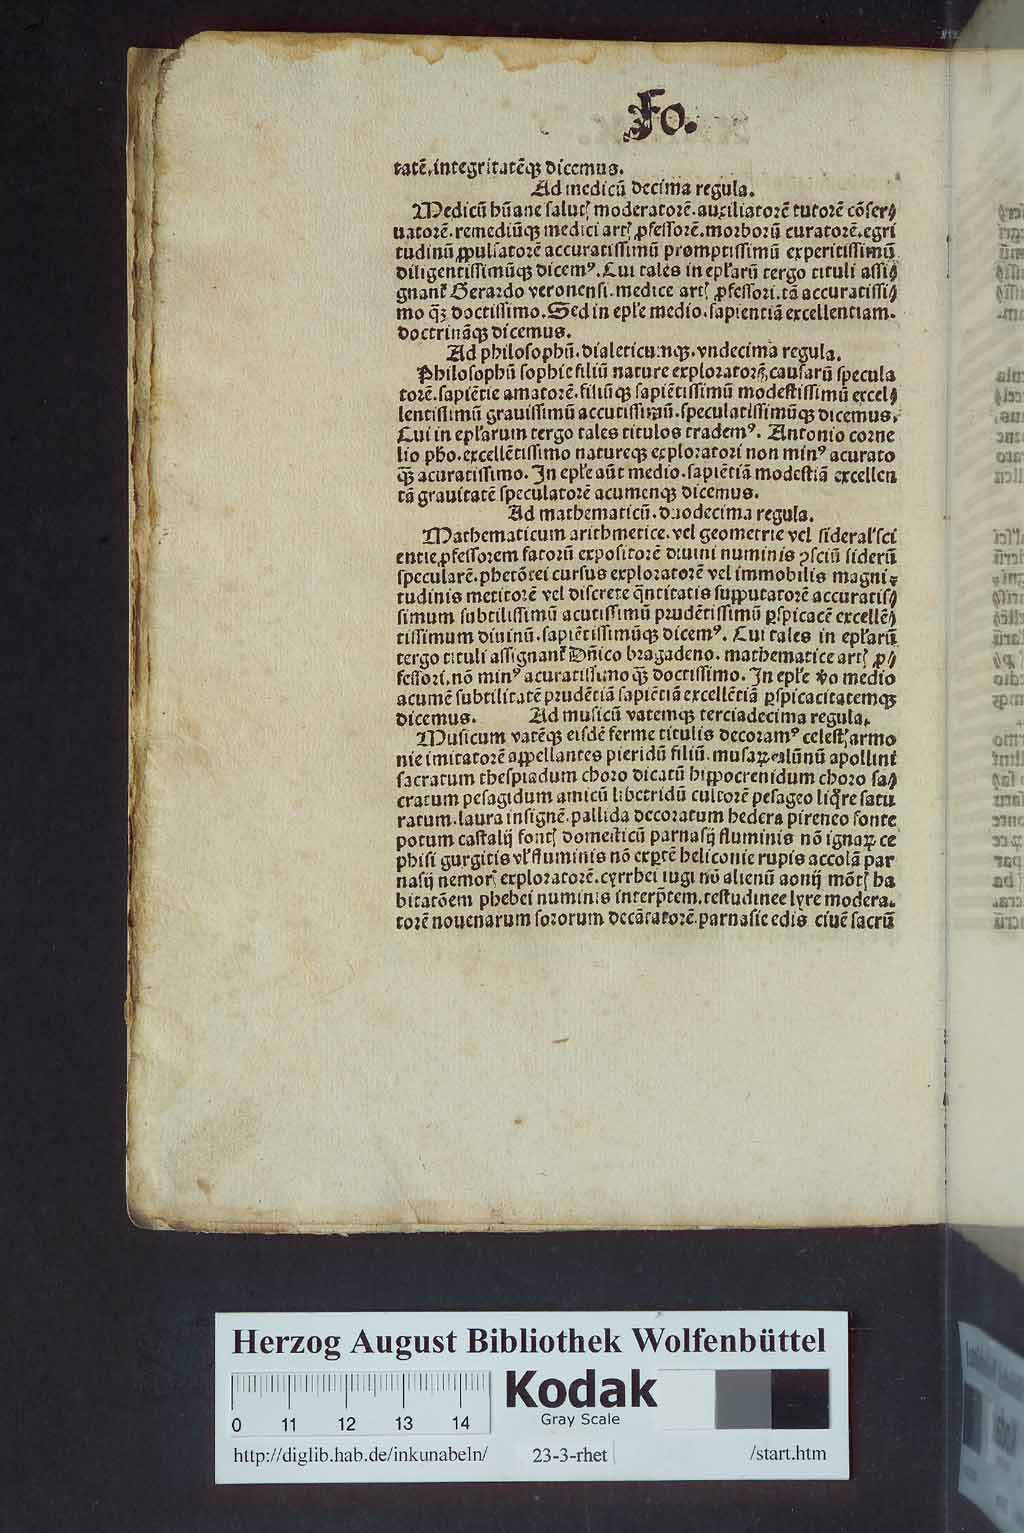 Fo.
tatē.integritatēqꝫ dicemus.
Ad medicū decima regula.
Medicū hūane salutꝭ moderatorē.auxiliatorē tutorē cōser⸗
uatorē.remediūqꝫ medici artꝭ ꝓfessorē.morborū curatorē.egri
tudinū ꝓpulsatorē accuratissimū promptissimū experitissimū
diligentissimūqꝫ dicemꝰ. Cui tales in epl'arū tergo tituli assi⸗
gnant᷑ Gerardo veronensi.medice artꝭ ꝓfessori.tā accuratissi⸗
mo q̄ꝫ doctissimo. Sed in epl'e medio.sapientiā excellentiam.
doctrināqꝫ dicemus.
Ad philosophū.dialeticumqꝫ.vndecima regula.
Philosophū sophie filiū nature exploratorē.causarū specula
torē.sapiētie amatorē.filiūqꝫ sapiētissimū modestissimū excel⸗
lentissimū grauissimū accutissimū.speculatissimūqꝫ dicemus.
Cui in epl'arum tergo tales titulos trademꝰ. Antonio corne
lio pho.excellētissimo natureqꝫ exploratori non minꝰ acurato
q̄ꝫ acuratissimo. In epl'e aūt medio.sapiētiā modestiā excellen
tā grauitatē speculatorē acumenqꝫ dicemus.
Ad mathematicū.duodecima regula.
Mathematicum arithmetice.vel geometrie vel sideral'sci
entie.ꝓfessorem fatorū expositorē diuini numinis ꝯsciū siderū
specularē.phetōtei cursus exploratorē vel immobilis magni⸗
tudinis metitorē vel discrete q̄ntitatis supputatorē accuratis⸗
simum subtilissimū acutissimū prudētissimū ꝑspicacē excellē⸗
tissimum diuinū.sapiētissimūqꝫ dicemꝰ. Cui tales in epl'arū
tergo tituli assignant᷑ Dn̄ico bragadeno. mathematice artꝭ ꝓ⸗
fessori.nō minꝰ acuratissimo q̄ꝫ doctissimo. In epl'e ꝟo medio
acumē subtilitatē prudētiā sapiētiā excellētiā ꝑspicacitatemqꝫ
dicemus. Ad musicū vatemqꝫ terciadecima regula.
Musicum vatēqꝫ eisdē ferme titulis decoramꝰ celestꝭ armo
nie imitatorē appellantes pieridū filiū.musaꝝ alūnū apollini
sacratum thespiadum choro dicatū hippocrenidum choro sa⸗
cratum pesagidum amicū libetridū cultorē pesageo liq̄re satu
ratum.laura insignē.pallida decoratum hedera pireneo fonte
potum castalij fontꝭ domesticū parnasij fluminis nō ignaꝝ ce
phisi gurgitis vl' fluminis nō exꝑtē heliconie rupis accolā par
nasij nemorꝭ exploratorē.cyrrhei iugi nō alienū aonij mōtꝭ ha
bitatōem phebei numinis interp̄tem.testudinee lyre modera⸗
torē nouenarum sororum decātatorē.parnasie edis ciuē sacrū
Herzog August Bibliothek Wolfenbüttel
0 11 12 13 14
Kodak
Gray Scale
http://diglib.hab.de/inkunabeln/ 23-3-rhet /start.htm